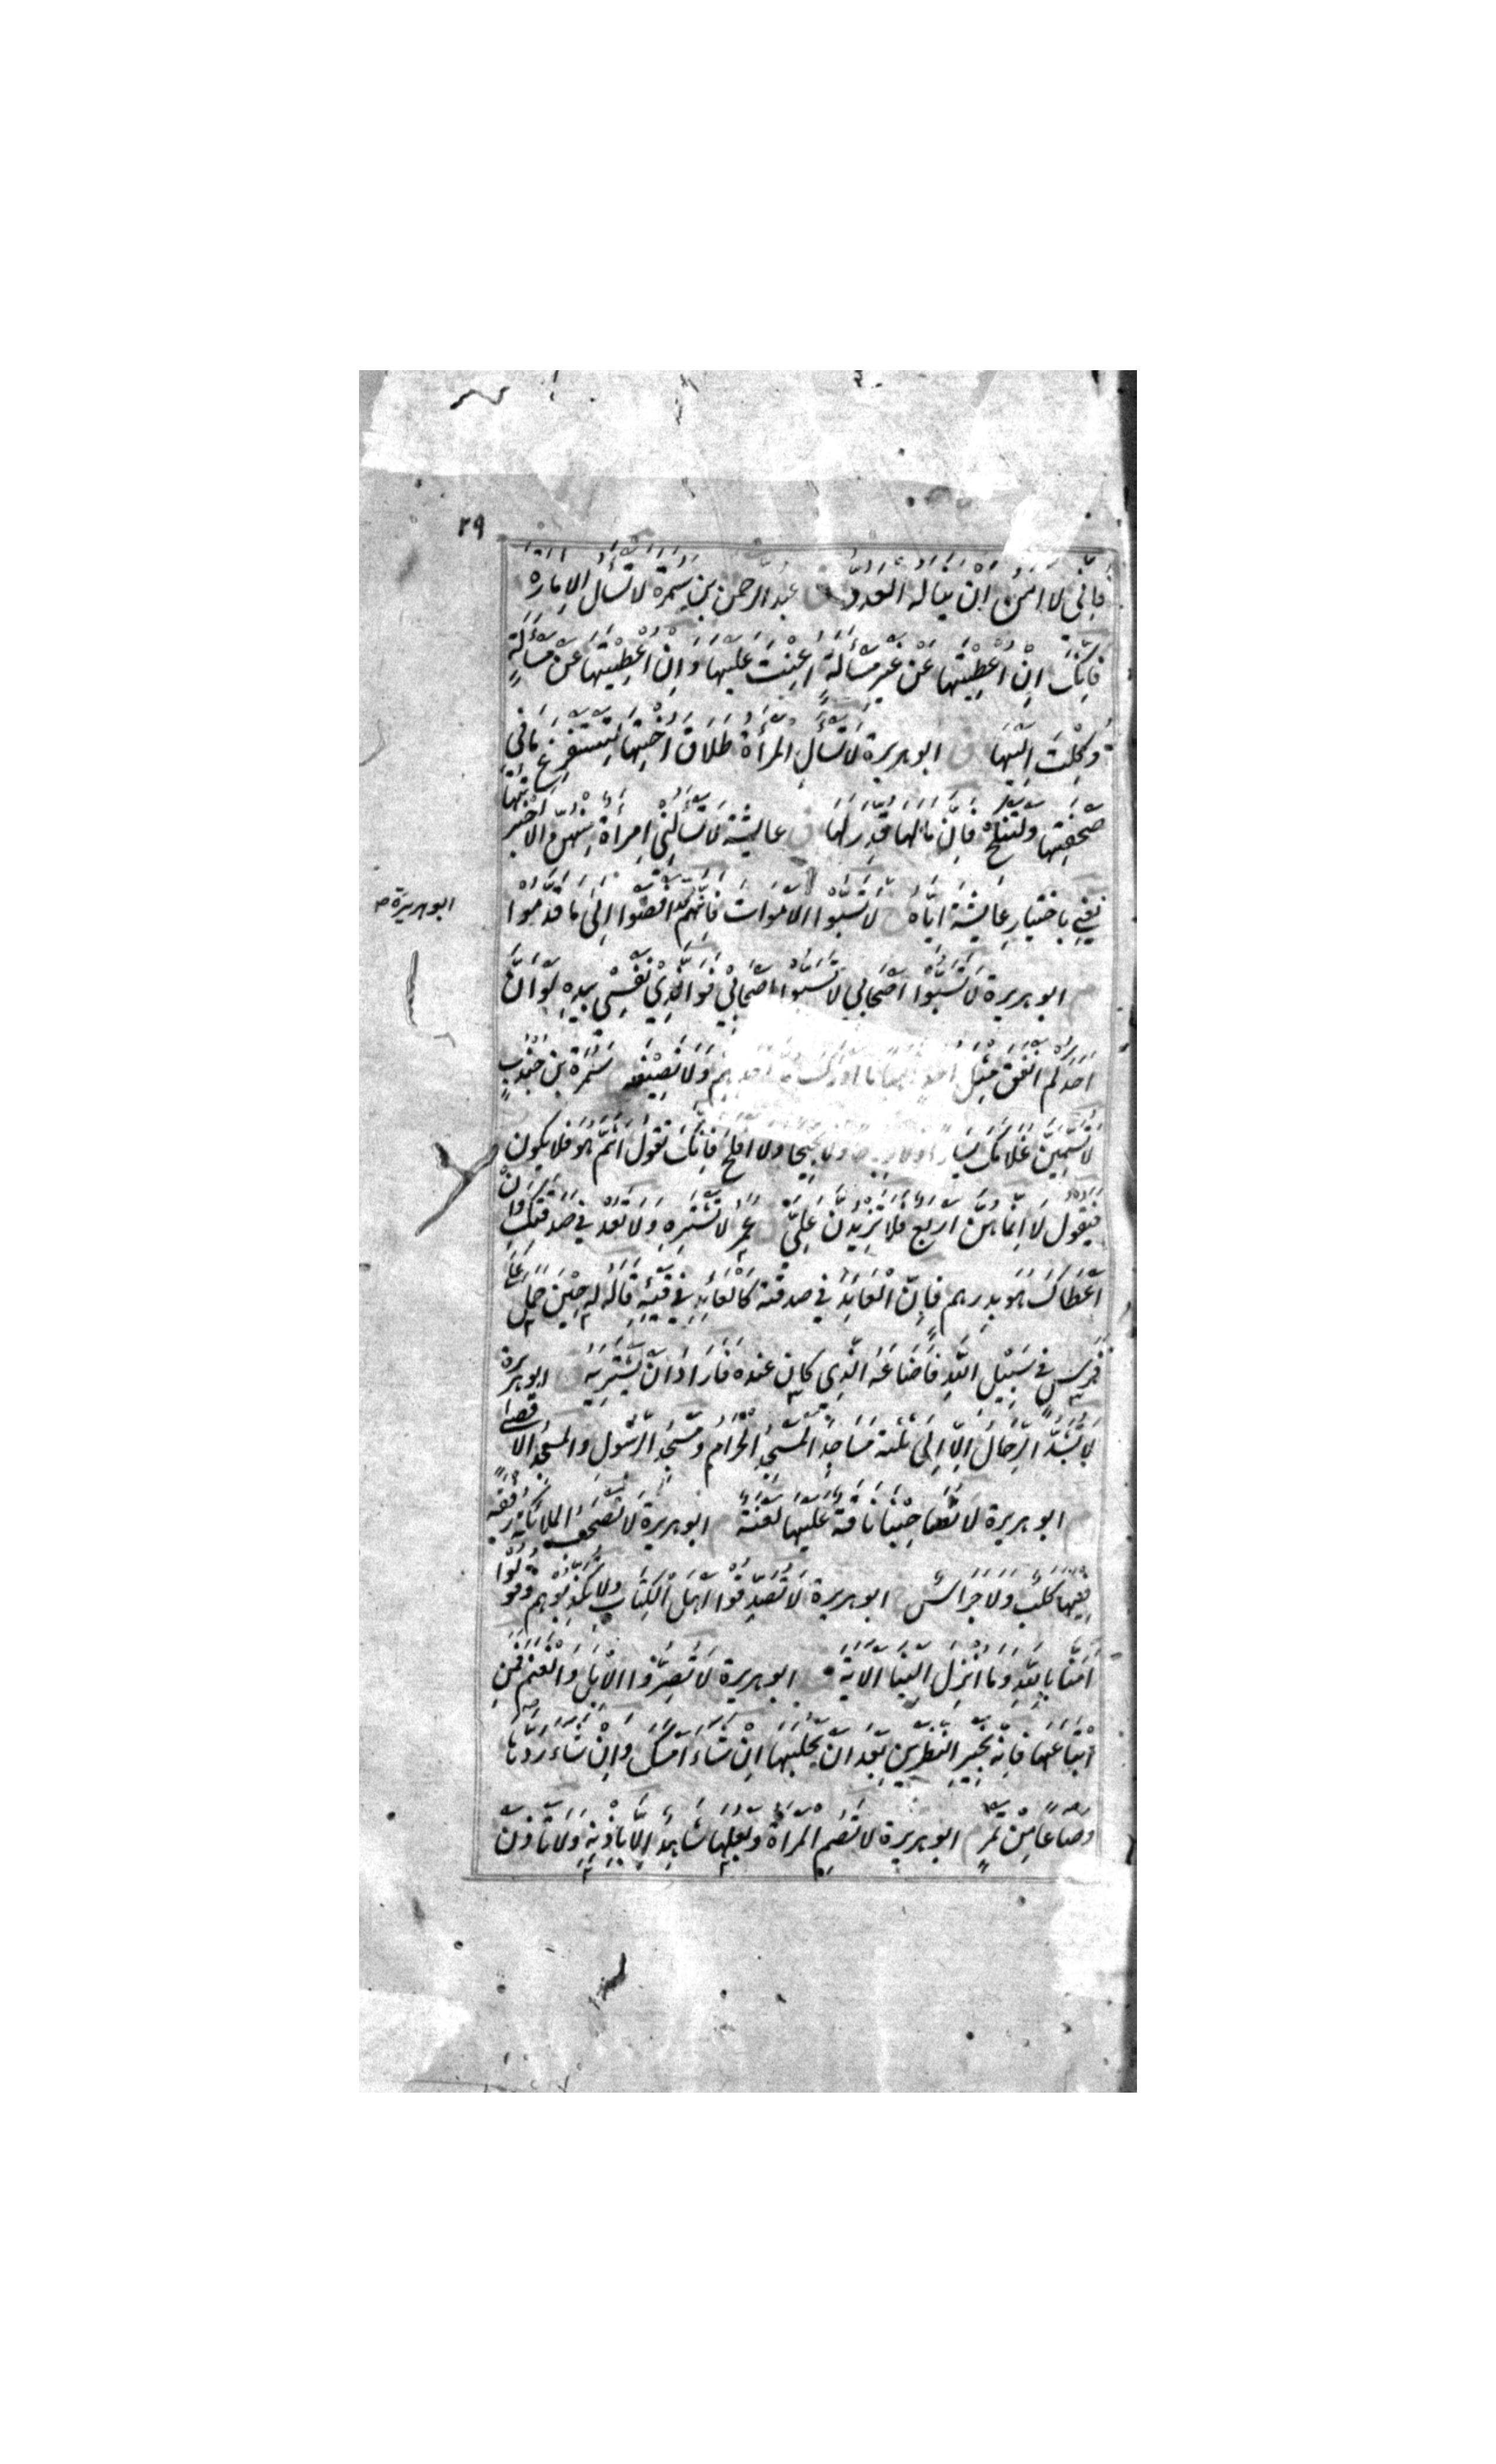 ٢٩
فَاِنِّي لا اٰمَنُ اَنْ يناله العَدُوُّ ق عبد الرحمن بن سَمُرَة لا تَسْأَلِ الاِمَارَة
فَاِنَّكَ اِنْ اُعْطِيْتَهَا عَنْ غَيْرِ مَسْأَلَةٍ اُعِنْتَ عَلَيْهَا وَاِنْ اُعْطِيْتَهَا عَنْ مَسْأَلَةٍ
وُكِلْتَ اِلَيْهَا ق ابو هريرة لَا تَسْأَلِ المَرْأَةُ طَلَاقَ اُخْتِهَا لِتَسْتَفْرِغَ مَا فِي
صَحْفَتِهَا وَلْتَنْكِحْ فَاِنَّ مَا لَهَا قُدِّرَ لَهَا ق عايشة لَا تَسْأَلُنِي اِمْرَأَةٌ مِنْهُنَّ اِلَّا اَخْبَرْتُهَا
يَعْنِي بِاخْتِيَارِ عَايِشَةَ اِيَّاهُ خ لَا تَسُبُّوا الْاَمْوَاتَ فَاِنَّهُمْ قد اَفْضَوْا اِلَى مَا قَدَّمُوا
ابو هريرة
م ابو هريرة لَا تَسُبُّوا اَصْحَابِي لَا تَسُبُّوا اَصْحَابِيْ فَوَ الَّذِيْ نَفْسِيْ بِيَدِهِ لَوْ اَنَّ
اَحَدَكُم انفق مِثْلَ اُحُدٍ ذهبا ما ادرك مد احدهم وَلَا نَصِيْفَه سَمُرَة بن جُنْدُبٍ
لَا تُسَمِّيَنَّ غُلَامَكَ يَسَارًا ولا رباحا ولا نجيحا ولا افلح فَاِنَّكَ تقول اَثَمَّ هُوَ فلا يكون
فَيَقُوْلُ لَا اِنَّمَا هُنَّ اَرْبَعٌ فَلَا تَزِيْدُنَّ عَلَيَّ عُمَرُ لَا تَشْتَرِهِ وَلَا تَعُدْ فِي صَدَقَتِكَ وَاِنْ
اَعْطَاكَهُ بِدِرْهَم فَاِنَّ الْعَائِدَ فِي صدقته كَالْعَائِدِ فِي قَيْئِهِ قَالَهُ له حِيْنَ حَمَلَ عَلَى
فَرَسٍ فِي سَبِيْلِ اللهِ فَاَضَاعَهُ الَّذِي كان عنده فَاَرَادَ اَنْ يَشْتَرِيَهُ ق ابو هريرة
لَا تُشَدُّ الرِّحَالُ اِلَّا اِلَى ثَلٰثَة مَسَاجِدَ الْمَسْجِدِ الْحَرَامِ وَمَسْجِدِ الرَّسُوْلِ والمسجد الاقصى
م ابو هريرة لا تُصَاحِبْنَا نَاقَةٌ عَلَيْهَا لَعْنَةٌ م ابو هريرة لَا تَصْحَبُ الملائكة رفقة
فِيْهَا كَلْبٌ وَلَا جَرَسٌ ابو هريرة لَا تُصَدِّقُوْا اَهْلَ الْكِتَابِ وَلَا تُكَذِّبُوهم وَقُوْلُوا
اٰمَنَّا بِاللهِ وَمَا اُنْزِلَ اِلَيْنَا اَلْاٰيَة ابو هريرة لَا تُصَرُّوا الْاِبِلَ وَالْغَنَمَ فَمَنِ
ابْتَاعَهَا فَاِنَّهُ بِخَيْرِ النَّظَرَيْنِ بَعْدَ اَنْ يَحْلُبَهَا اِنْ شَاءَ اَمْسَكَ وَاِنْ شَاءَ رَدَّهَا
وَصَاعًا مِنْ تَمْرٍ ابو هريرة لَا تَصُمِ الْمَرْأَةُ وَبَعْلُهَا شَاهِدٌ اِلَّا بِاِذْنِهِ وَلَا تَأْذَنْ